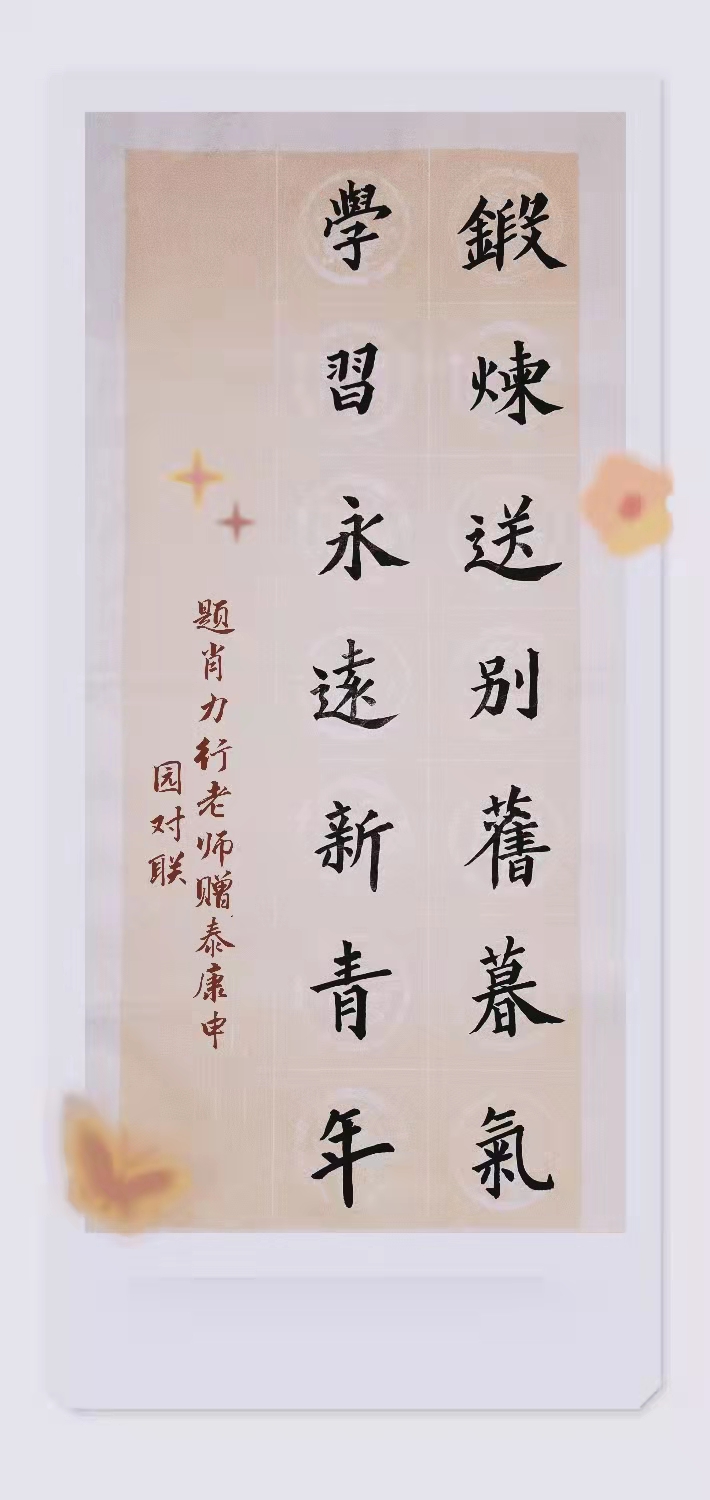 鍛煉送别舊暮氣
學習永遠新青年
题肖力行老师赠泰康申
园对联